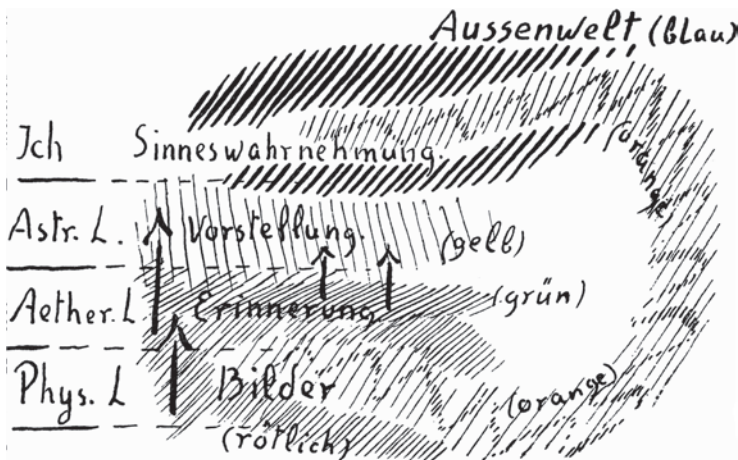 Aussenwelt (blau)
Ich Sinneswahrnehmung.
(orange)
Astr. L. Vorstellung. (gelb)
Aether. L Erinnerung (grün)
Phys. L Bilder (orange)
(rötlich)